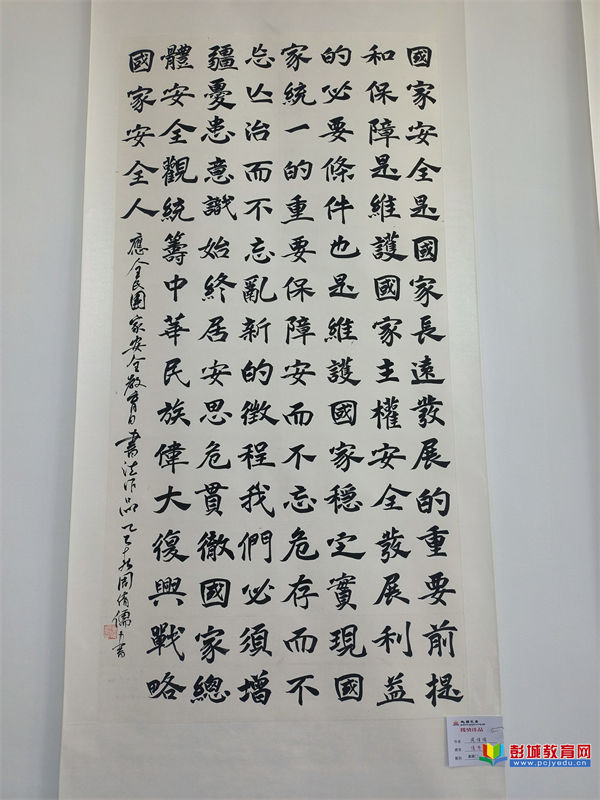 國家安全是國家長遠發展的重要前提
和保障是維護國家主權安全發展利益
的必要條件也是維護國家穩定實現國
家統一的重要保障安而不忘危存而不
忘亡治而不忘亂新的徵程我們必須增
疆憂患意識始終居安思危貫徹國家總
體安全觀統籌中華民族偉大復興戰略
國家安全人
應全民國家安全教育日書法作品乙巳周儒書
彭城教育网
www.pcjyedu.cn